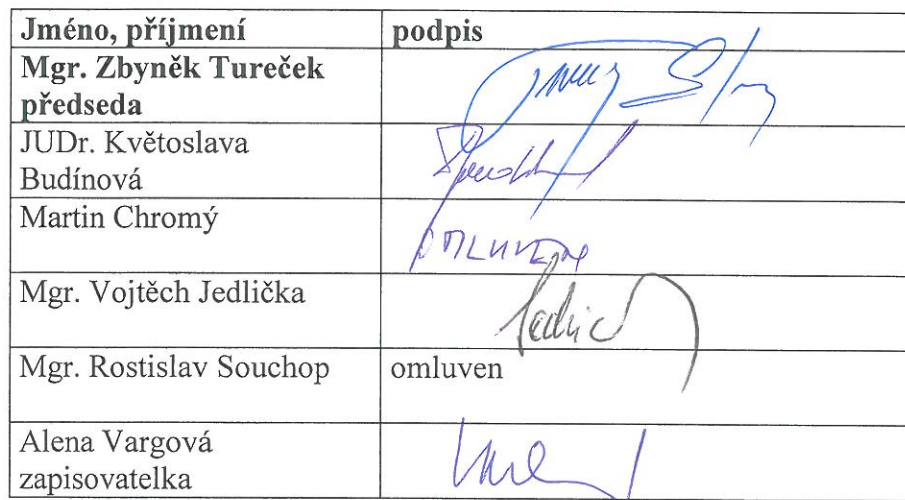 Jméno, příjmení podpis
Mgr. Zbyněk Tureček
předseda
JUDr. Květoslava
Budínová
Martin Chromý
OMLUVEN
Mgr. Vojtěch Jedlička
Mgr. Rostislav Souchop omluven
Alena Vargová
zapisovatelka